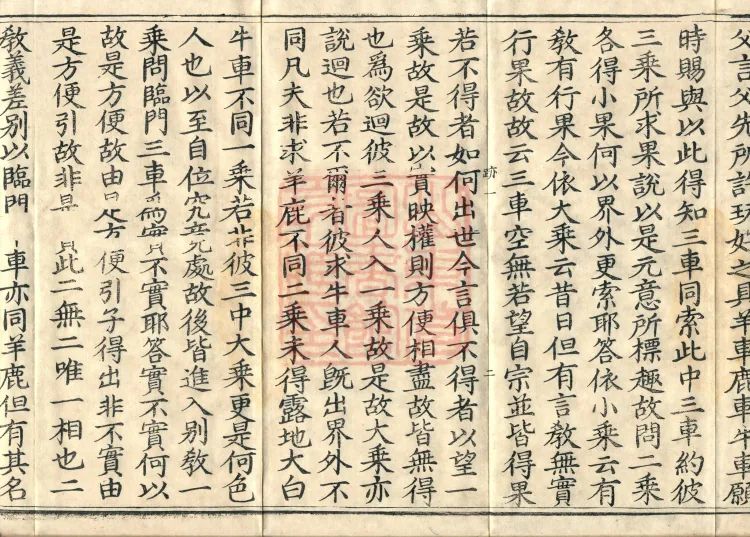 父言父先所許玩好之具羊車鹿車牛車願
時賜與以此得知三車同索此中三車約彼
三乘所求果說以是元意所標趣故問二乘
各得小果何以界外更索耶答依小乘云有
敎有行果今依大乘云昔日但有言敎無實
行果故故云三車空無若望自宗並皆得果
跡一 二
若不得者如何出世今言俱不得者以望一
乘故是故以實映權則方便相盡故皆無得
也爲欲迴彼三乘人入一乘故是故大乘亦
說迴也若不爾者彼求牛車人旣出界外不
同凡夫非求羊鹿不同二乘未得露地大白
牛車不同一乘若非彼三中大乘更是何色
人也以至自位究竟處故後皆進入別敎一
乘問臨門三車爲實不實耶答實不實何以
故是方便故由是方便引子得出非不實由
是方便引故非是實此二無二唯一相也二
敎義差別以臨門 車亦同羊鹿但有其名